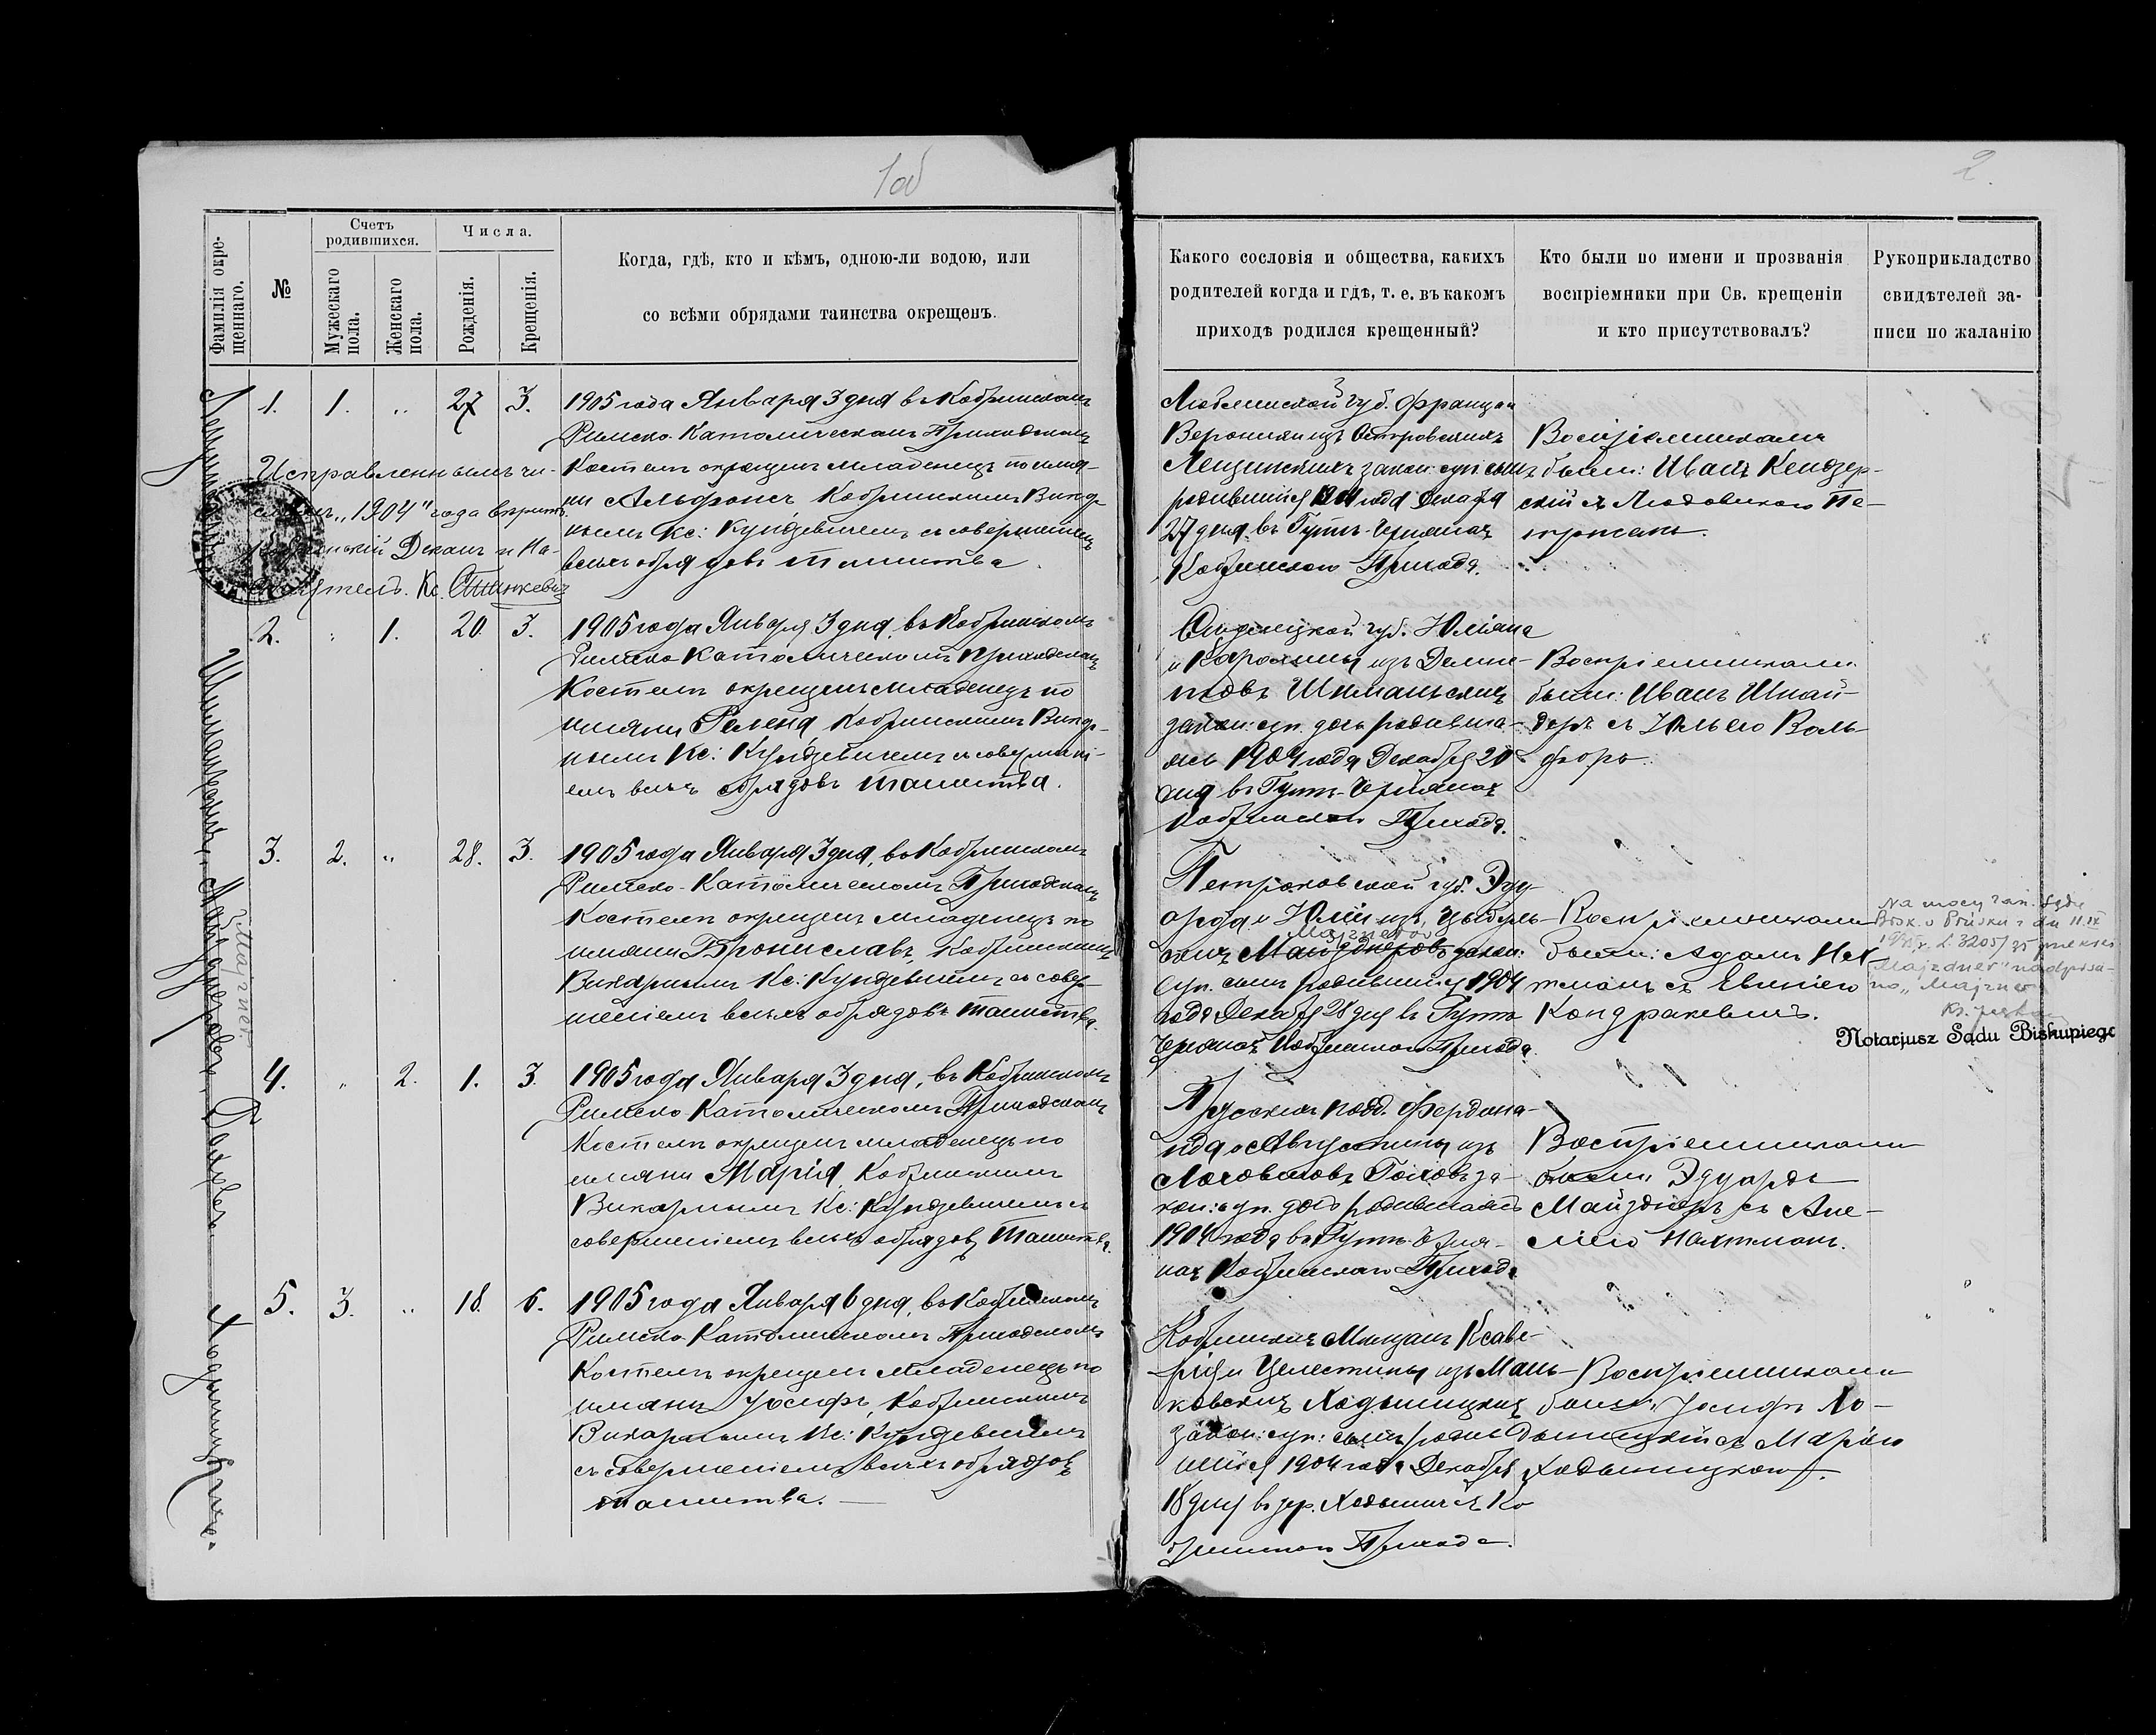 1об
2.
Фамилія окре-
щеннаго.
№
Счетъ
родившихся.
Мужескаго
пола.
Женскаго
пола.
Числа.
Рожденія.
Крещенія.
Когда, гдѣ, кто и кѣмъ, одною-ли водою, или
со всѣми обрядами таинства окрещенъ.
Какого сословія и общества, какихъ
родителей когда и гдѣ, т. е. въ какомъ
приходѣ родился крещенный?
Кто были по имени и прозванія
воспріемники при Св. крещеніи
и кто присутствовалъ?
Рукоприкладство
свидѣтелей за-
писи по жаланію
1. 1. „ 27 3.
1905 года Января 3 дня въ Кобринскомъ
Римско-Католическомъ Приходскомъ
Костелѣ окрещенъ младенецъ по имя-
ни Альфонсъ Кобринскимъ Викар-
нымъ Кс: Кундзевичемъ съ совершеніемъ
всѣхъ обрядовъ таинства.
Исправленнымъ чи-
„1904" года вѣрить
Деканъ и На-
Кс.
Люблинской губ. Франца и
Вероники изъ Островскихъ
Лещинскихъ закон: суп: сынъ
родившійся 1904 года Декабря
27 дня въ Гутѣ-
Кобринскаго Прихода.
Воспріемниками
были: Иванъ Кендзер-
скій съ Людовикою Пе-
2. „ 1. 20. 3.
1905 года Января 3 дня, въ Кобринскомъ
Римско-Католическомъ Приходскомъ
Костелѣ окрещенъ младенецъ по
имяни Гелена Кобринскимъ Викар-
нымъ Кс: Кундзевичемъ съ совершені-
емъ всѣхъ обрядовъ таинства.
губ. Юліана
и Каролины изъ
закон: суп. дочь родивша-
яся 1904 года Декабря 20
дня въ Гутѣ-
Кобринскаго Прихода.
Воспріемниками
были: Иванъ Шнай-
деръ съ Юльею Воль-
3. 2. „ 28. 3.
1905 года Января 3 дня, въ Кобринскомъ
Римско-Католическомъ Приходскомъ
Костелѣ окрещенъ младенецъ по
имяни Брониславъ, Кобринскимъ
Викарнымъ Кс: Кундзевичемъ съ совер-
шеніемъ всѣхъ обрядовъ таинства.
Петроковской губ. Эду-
арда и Юліи изъ Цыбуль-
Majznerów
скихъ Майзднеровъ закон:
суп. сынъ родившійся 1904
года Декабря 28 дня въ Гутѣ
Кобринскаго Прихода.
Воспріемниками
были: Адамъ
съ Евгеніею
Кондракевичъ.
Na mocy zarz. Sądu
Bisk. w Pińsku z dn. 11.IX
„Majzdner" nadpisa-
no „Majzner"
Notarjusz Sądu Biskupiego
Majzner
4. „ 2. 1. 3.
1905 года Января 3 дня, въ Кобринскомъ
Римско-Католическомъ Приходскомъ
Костелѣ окрещенъ младенецъ по
имяни Марія, Кобринскимъ
Викарнымъ Кс: Кундзевичемъ съ
совершеніемъ всѣхъ обрядовъ таинства.
Прусскихъ подд. Фердина-
нда и Августины изъ
за-
кон: суп. дочь родившаяся
1904 года въ Гутѣ
Кобринскаго Прихода
Воспріемниками
были Эдуардъ
Майзднеръ съ Аме-
ліею
5. 3. „ 18. 6.
1905 года Января 6 дня, въ Кобринскомъ
Римско-Католическомъ Приходскомъ
Костелѣ окрещенъ младенецъ по
имяни Іосифъ, Кобринскимъ
Викарнымъ Кс: Кундзевичемъ
съ совершеніемъ всѣхъ обрядовъ
таинства.
Кобринскихъ Мѣщанъ Ксаве-
рія и Целестины изъ Мань-
ковскихъ Ходыницкихъ
закон: суп: сынъ родив-
шійся 1904 года Декабря
18 дня въ дер. Ходыничахъ Ко-
бринскаго Прихода.
Воспріемниками
были: Іосифъ Хо-
дыницкій съ Маріею
Ходыницкою.